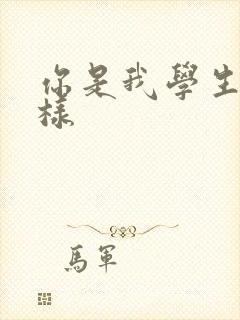 你是我學生
樣
馬軍